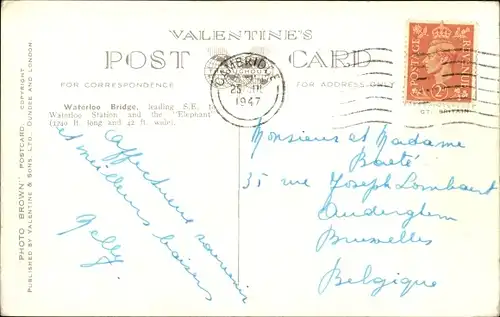 VALENTINE'S
POST CARD
FOR CORRESPONDENCE
FOR ADDRESS ONLY
CAMBRIDGE
1947
POSTAGE
REVENUE
Waterloo Bridge, leading S.E. to
Waterloo Station and the "Elephant"
(1240 ft. long and 42 ft. wide).
"PHOTO BROWN" POSTCARD. COPYRIGHT
PUBLISHED BY VALENTINE & SONS, LTD., DUNDEE AND LONDON.
Affectueux souvenir
et meilleurs baisers
Nelly.
Monsieur et Madame
Baeté
35 rue Joseph Lombaert
Auderghem
Bruxelles
Belgique